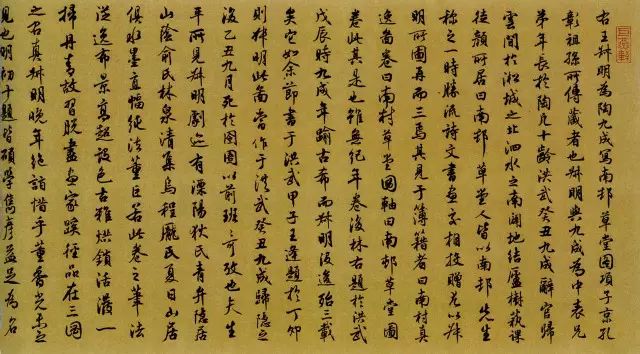 右王叔明為陶九成寫南邨草堂圖項子京孔
彰祖孫所傳藏者也叔明與九成為中表兄
弟年長於陶凡十齡洪武癸丑九成辭官歸
雲間於淞城之北泗水之南闢地結廬樹蓺課
徒顏所居曰南邨草堂人皆以南邨先生
稱之一時勝流詩文書畫交相投贈尤以叔
明所圖再而三焉其見于簿籍者曰南村真
逸圖卷曰南村草堂圖軸曰南邨草堂圖
卷此其是也雖無紀年卷後林右題於洪武
戊辰時九成年踰古希而叔明後逝殆三載
矣它如余節書于洪武甲子王逢題於丁卯
則叔明此圖當作于洪武癸丑九成歸隱之
後乙丑九月死於囹圄以前班班可攷也夫生
平所見叔明劇迹有溧陽狄氏青弁隱居
山陰俞氏林泉清集烏程龐氏夏日山居
俱水墨直幅純法董巨若此卷之筆法
從逸希景高超設色古雅烘鎖活潑一
掃丹青故習脫盡畫家蹊徑品在三園
之右真叔明晚年絕詣惜乎董香光未之
見也明初十題皆碩學雋彥益足為名